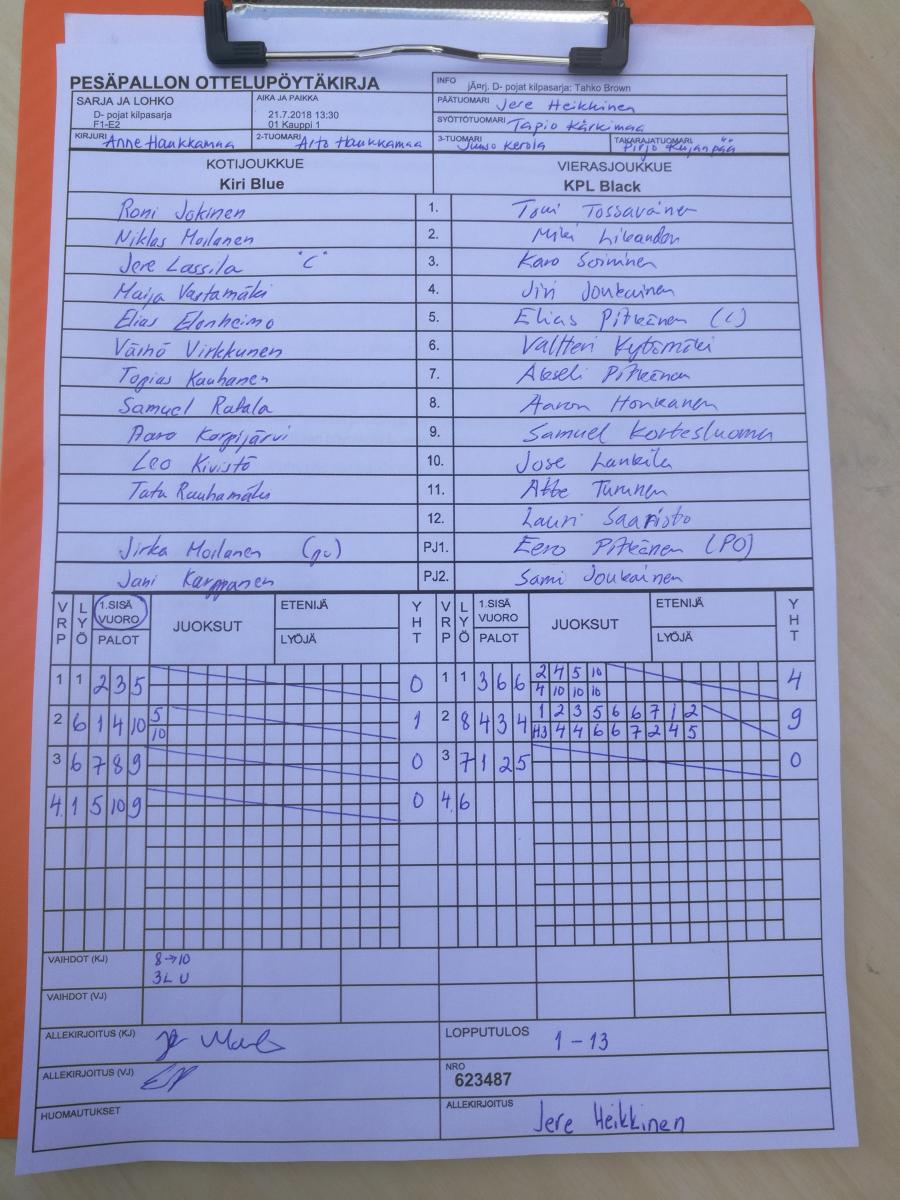 PESÄPALLON OTTELUPÖYTÄKIRJA
INFO jÃ¤rj. D- pojat kilpasarja: Tahko Brown
SARJA JA LOHKO
D- pojat kilpasarja
F1-E2
AIKA JA PAIKKA
21.7.2018 13:30
01 Kauppi 1
PÄÄTUOMARI Jere Heikkinen
SYÖTTÖTUOMARI Tapio Kärkimaa
KIRJURI Anne Haukkamaa 2-TUOMARI Arto Haukkamaa 3-TUOMARI Juuso Kerola TAKARAJATUOMARI Pirjo Kujanpää
KOTIJOUKKUE VIERASJOUKKUE
Kiri Blue KPL Black
Roni Jokinen 1. Tomi Tossavainen
Niklas Moilanen 2. Miki
Jere Lassila "C" 3. Karo Soininen
Maija Vastamäki 4. Jiri Joukainen
Elias Elonheimo 5. Elias Pitkänen (C)
Väinö Virkkunen 6. Valtteri Kytömäki
Topias Kauhanen 7. Akseli Pitkänen
Samuel Ratala 8. Aaron Honkanen
Aaro Karpijärvi 9. Samuel Kortesluoma
Leo Kivistö 10. Jose Lankila
Tatu Rauhamäki 11. Atte Turunen
12. Lauri Saaristo
Jirka Moilanen (pv) PJ1. Eero Pitkänen (PO)
Jani Karppanen PJ2. Sami Joukainen
VRP LYÖ 1.SISÄ VUORO PALOT JUOKSUT ETENIJÄ LYÖJÄ YHT VRP LYÖ 1.SISÄ VUORO PALOT JUOKSUT ETENIJÄ LYÖJÄ YHT
1 1 2 3 5 0 1 1 3 6 6 2 4 5 10 4
4 10 10 10
2 6 1 4 10 5 1 2 8 4 3 4 1 2 3 5 6 6 7 1 2 9
10 H3 4 4 6 6 7 2 4 5
3 6 7 8 9 0 3 7 1 2 5 0
4. 1 5 10 9 0 4. 6
VAIHDOT (KJ) 8→10
3L U
VAIHDOT (VJ)
ALLEKIRJOITUS (KJ) LOPPUTULOS 1 - 13
ALLEKIRJOITUS (VJ) NRO 623487
HUOMAUTUKSET ALLEKIRJOITUS Jere Heikkinen